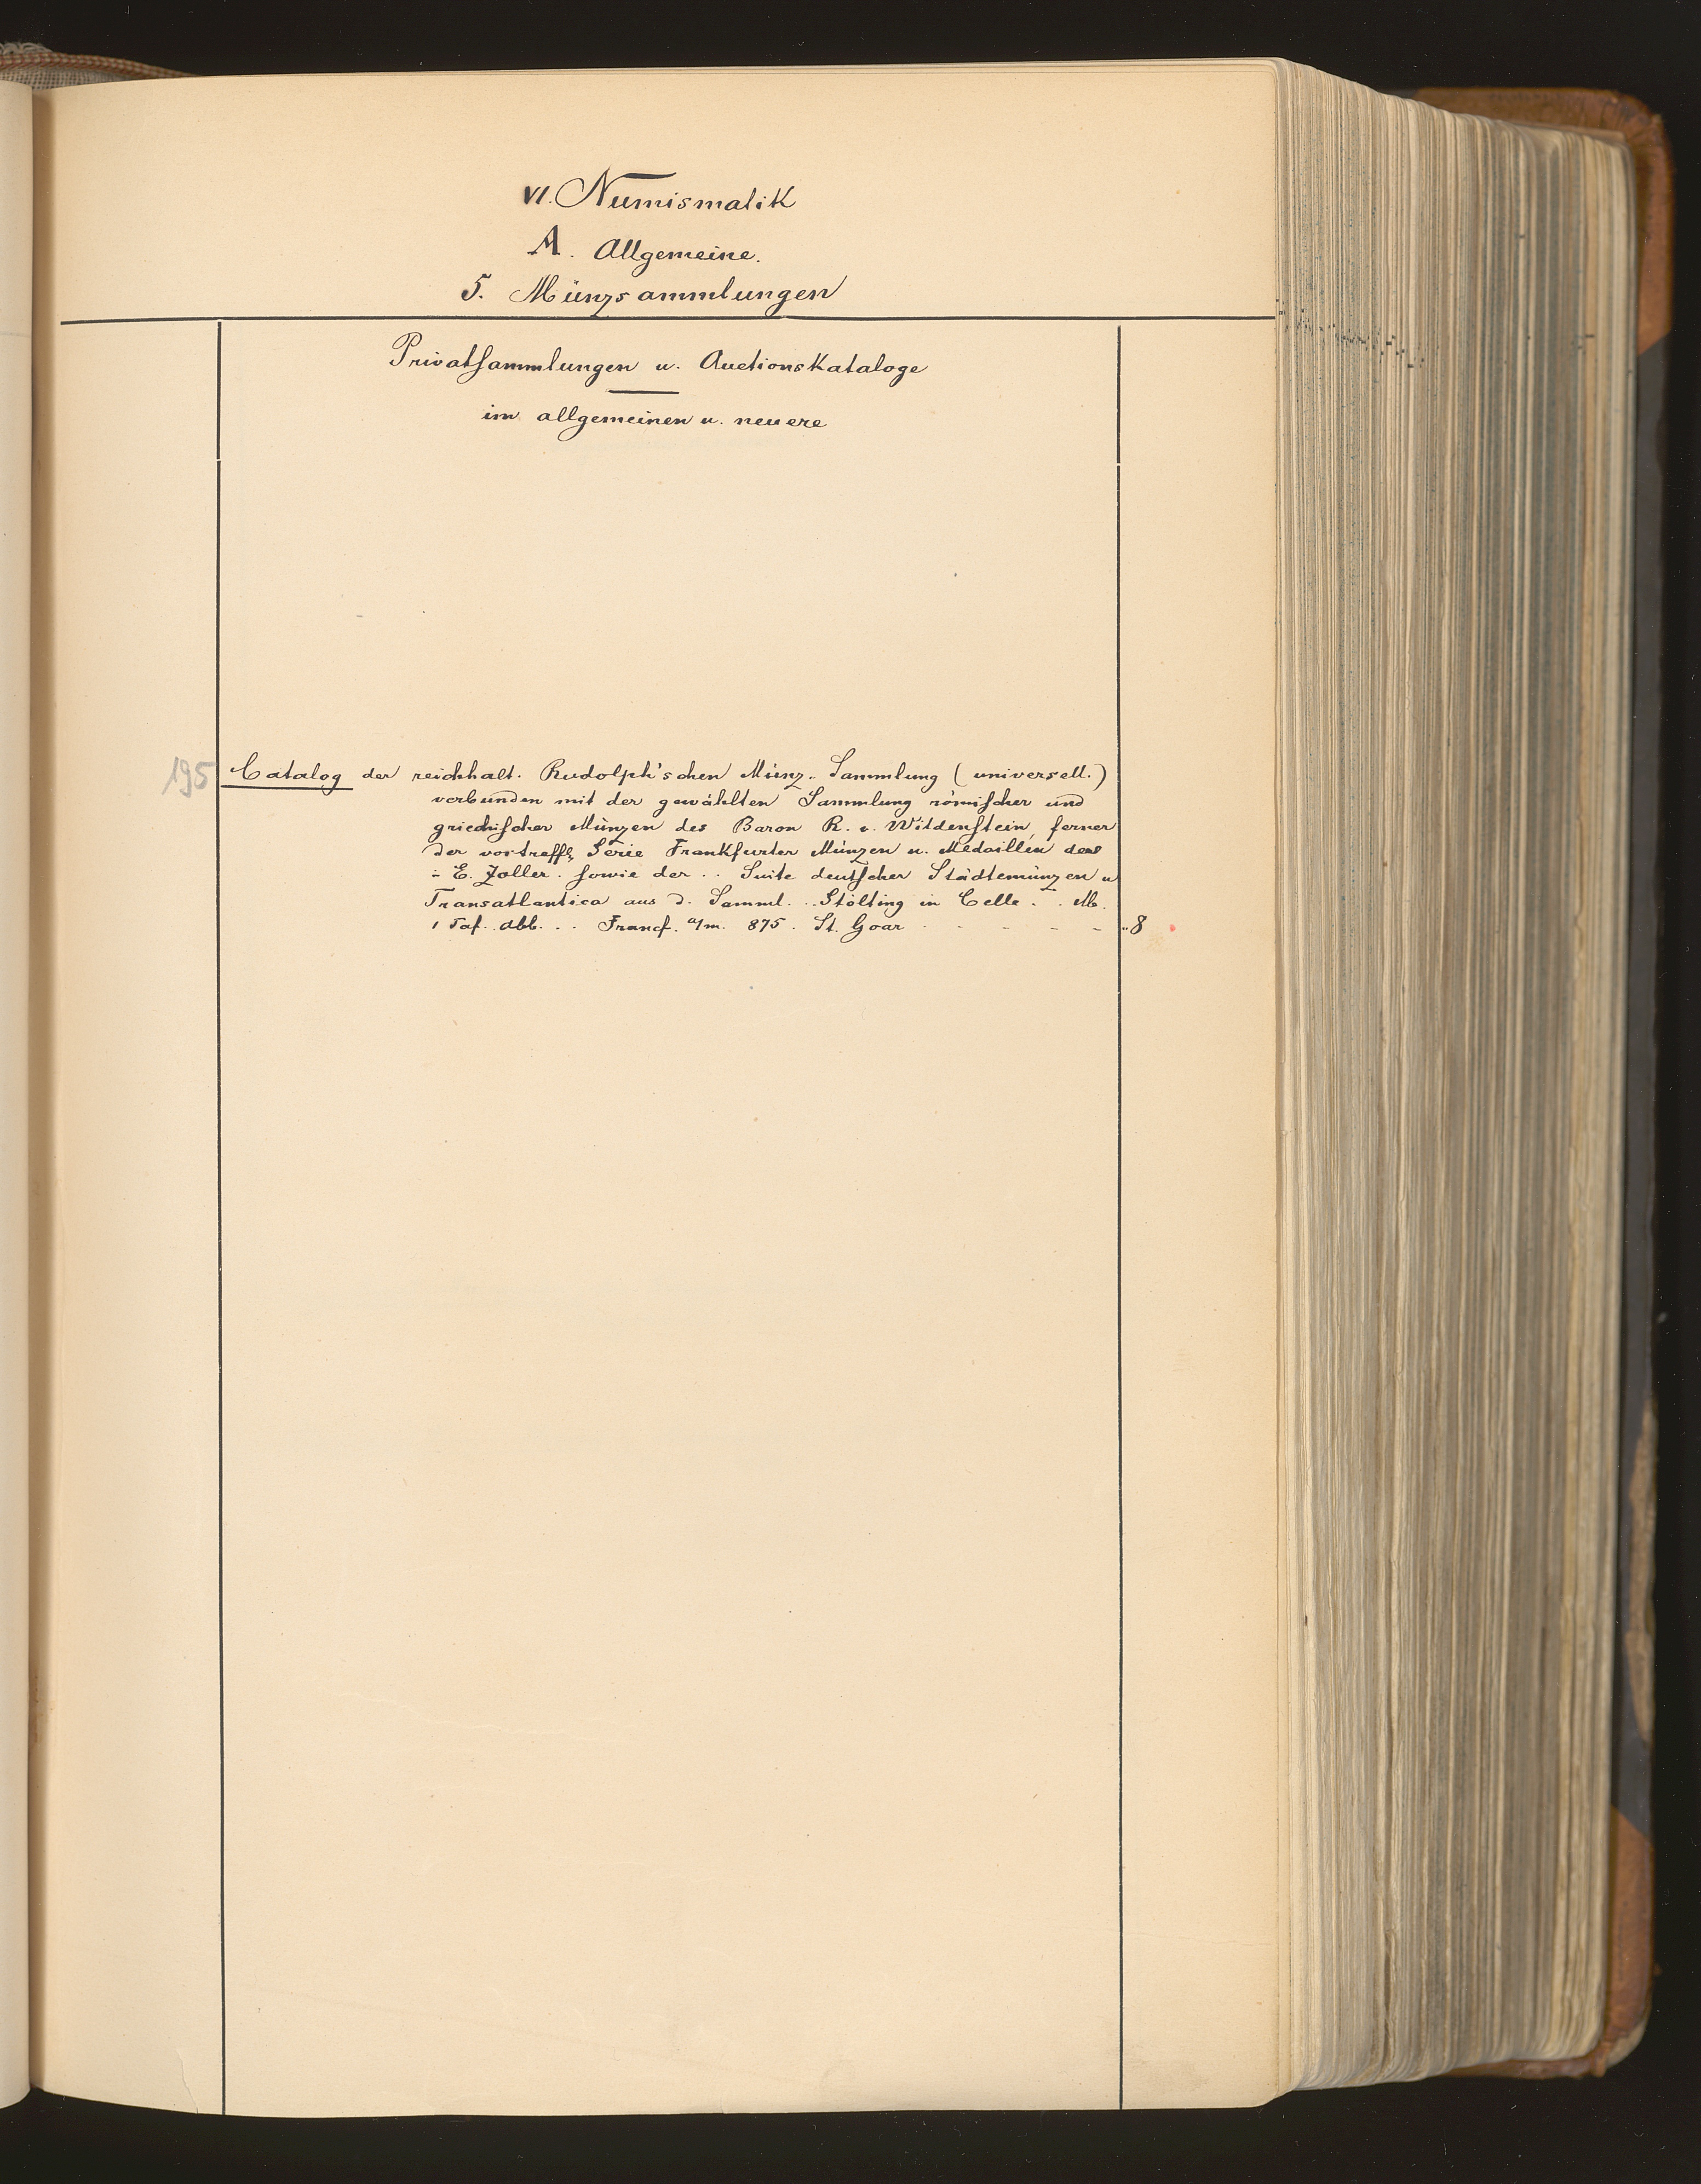 VI. Numismatik
A. Allgemeine.
5. Münzsammlungen
Privatsammlungen u. Auctionskataloge
im allgemeinen u. neuere
195 Catalog der reichhalt. Rudolph'schen Münz-Sammlung (universell.)
verbunden mit der gewählten Sammlung römischer und
griechischer Münzen des Baron R. v. Wildenstein, ferner
der vortreffl. Serie Frankfurter Münzen u. Medaillen des
E. Zoller. sowie der .. Suite deutscher Städtemünzen u
Transatlantica aus d. Samml. .. Stölting in Celle . .
1 Taf. Abb. . . Francf. a/m. 875. St. Goar - - - - - 8